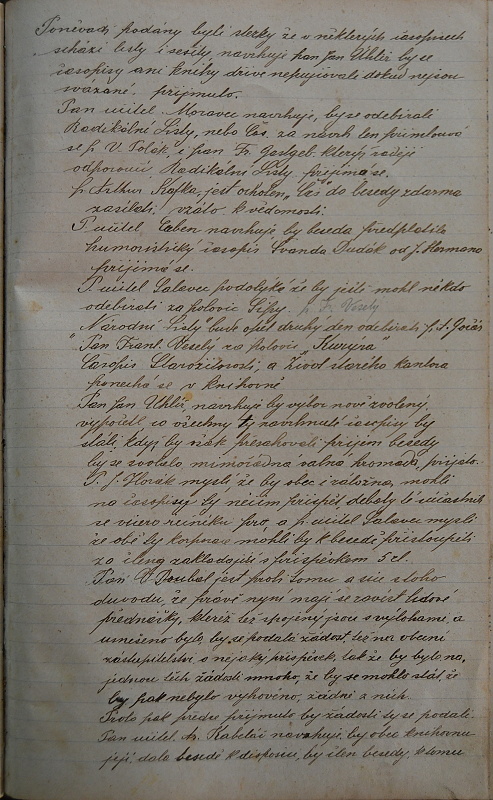 Poněvadž podány byli stesky že v některých časopisech
schází listy i sešity navrhuje pan Jan Uhlíř by se
časopisy ani knihy dříve nepujčovali dokud nejsou
svázané. přijmuto.
Pan učitel Moravec navrhuje, by se odebírali
Radikální Listy, nebo Čas. za návrh ten přimlouvá
se p. V. Polák, i pan Fr. Gastgeb kterýž raději
odporoučí Radikální Listy přijímá se.
p. Arthur Kafka, jest ochoten „Čas“ do besedy zdarma
zasílati vzato k vědomosti.
P. učitel Caben navrhuje by beseda předplatila
humoristický časopis Švanda Dudák od J. Hermana
přijímá se.
P. učitel Salavec podotýká že by ještě mohl někdo
odebírati za polovic Šípy. p. Fr. Veselý
„Národní Listy“ bude opět druhý den odebírati J. S.
Pan Frant. Veselý za polovic „Kurýra“
Časopis Starožitnosti, a Život starého kantora
ponechá se v knihovně
Pan Jan Uhlíř, navrhuje by výbor nově zvolený,
vypočetl co všechny ty navrhnuté časopisy by
stáli, když by však přesahovali příjem besedy
by se svolala, mimořádná valná hromada, přijato.
P. J. Horák myslí, že by obec i záložna, mohli
na časopisy ty něčím přispět, debaty té súčastnili
se vícero řečníku pro, a p. učitel Salavec myslí
že obě ty korporace mohli by k besedě přistoupiti
za člena zakládající s příspěvkem 5 zl.
Pan V. Doubal jest proti tomu a sice z toho
duvodu, že právě nyní mají se zavést lidové
přednášky, kteréž též spojeny jsou s výlohami, a
usnešeno bylo, by se podala žádost též na obecní
zastupitelství o nějaký příspěvek, tak že by bylo na
jednou těch žádostí mnoho, že by se mohlo stát, že
by pak nebylo vyhověno, žádné a nich.
Proto pak předce přijmuto by žádosti ty se podali.
Pan učitel Ant. Kabeláč navrhuje, by obec knihovnu
její, dala besedě k disposici, by člen besedy, k tomu